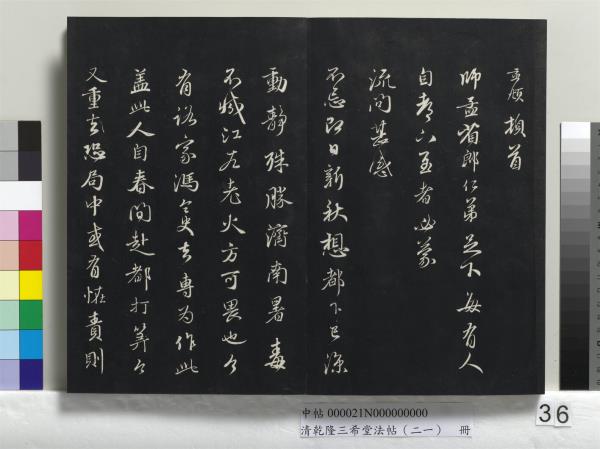 孟頫頓首
師孟省郎仁弟足下每有人
自都下至者必蒙
流問甚感
不忘即日新秋想都下已涼
動靜殊勝濟南暑毒
不減江左老火方可畏也々
有家馮令史去專為作此
蓋此人自春間赴都打筭々
又重去恐局中或有怪責則
中帖 000021N000000000
清乾隆三希堂法帖(二一) 冊
36